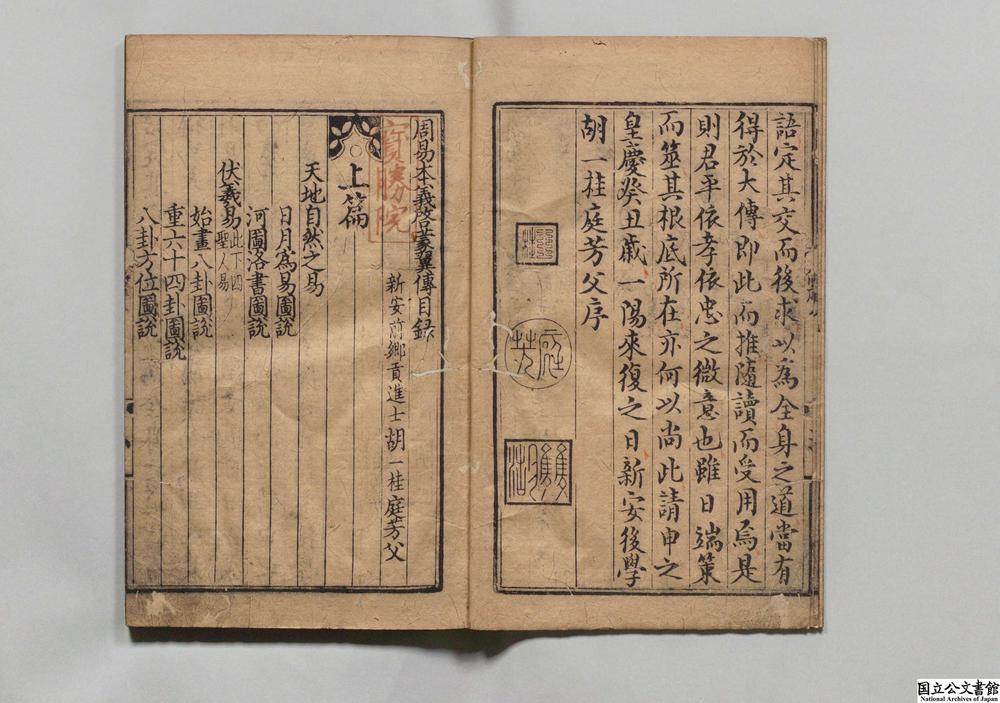 語定其交而後求以為全身之道當有
得於大傳即此而推隨讀而受用焉是
則君平依孝依忠之微意也雖曰端策
而筮其根底所在亦何以尚此請申之
皇慶癸丑歲一陽來復之日新安後學
胡一桂庭芳父序
周易本義啓蒙翼傳目録
新安前鄉貢進士胡一桂庭芳父
上篇
天地自然之易
日月為易圖說
河圖洛書圖說
伏羲易此下四聖人易
始畫八卦圖說
重六十四卦圖說
八卦方位圖說
勝院
雙湖
国立公文書館
National Archives of Japan